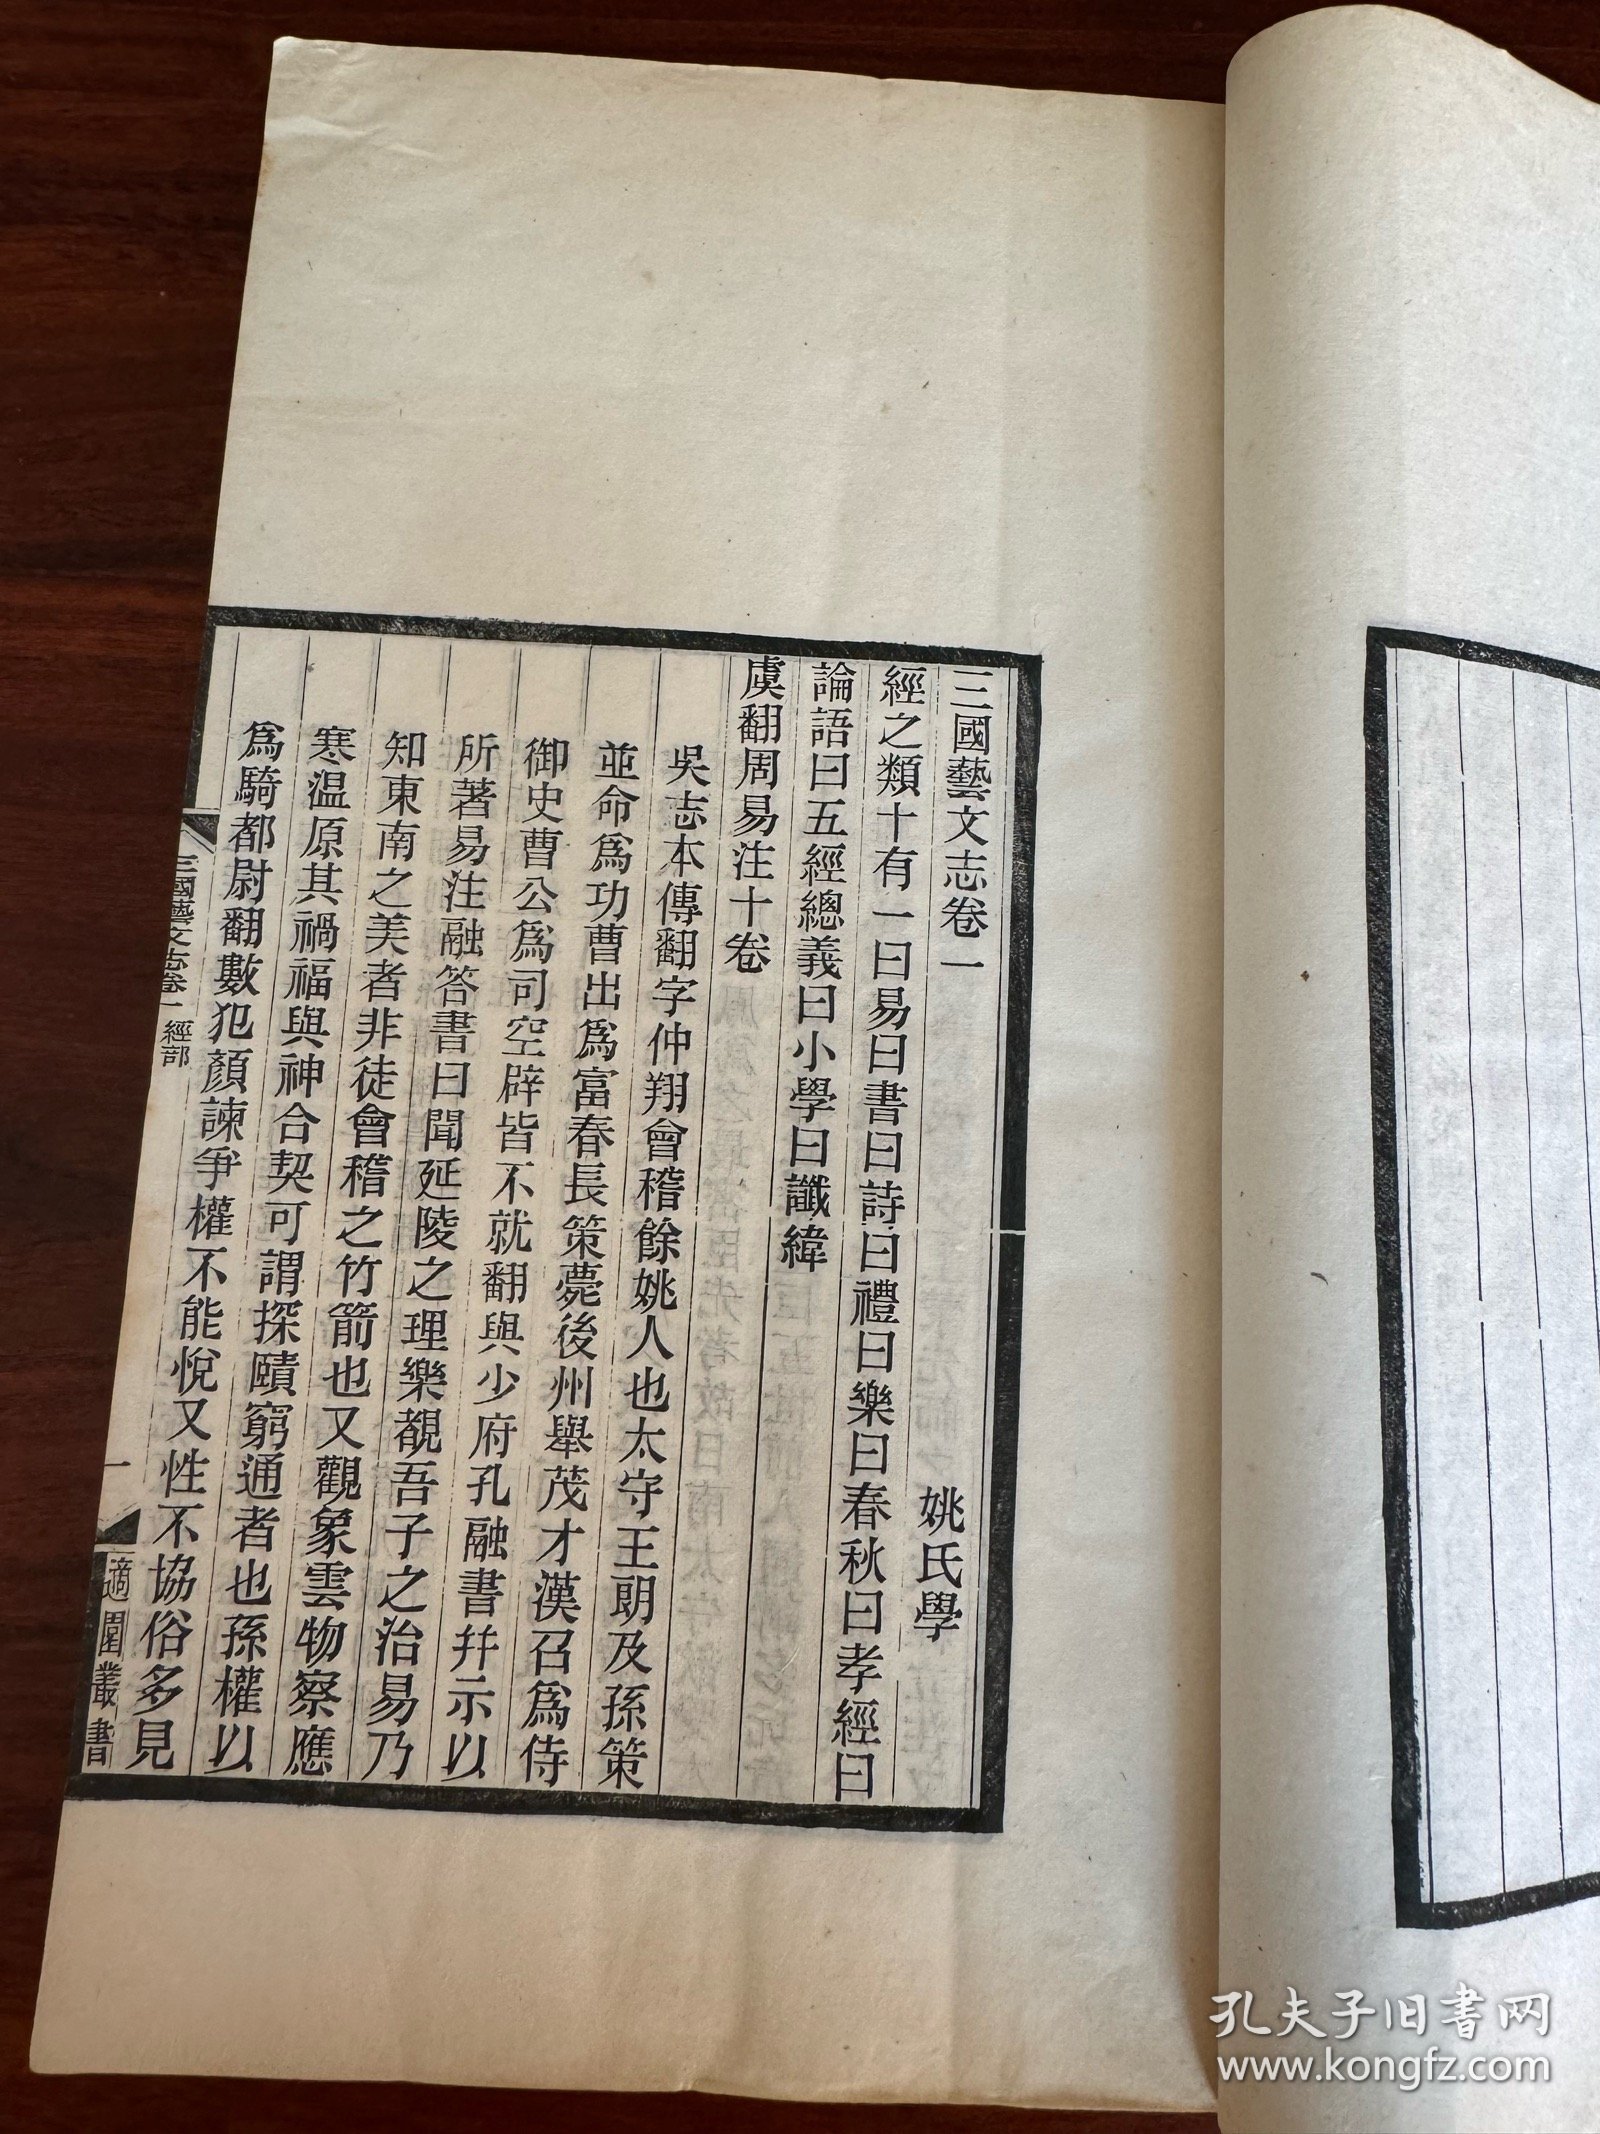 三國藝文志卷一
姚氏學
經之類十有一曰易曰書曰詩曰禮曰樂曰春秋曰孝經曰
論語曰五經總義曰小學曰讖緯
虞翻周易注十卷
吳志本傳翻字仲翔會稽餘姚人也太守王朗及孫策
並命爲功曹出爲富春長策薨後州舉茂才漢召爲侍
御史曹公爲司空辟皆不就翻與少府孔融書幷示以
所著易注融答書曰聞延陵之理樂覩吾子之治易乃
知東南之美者非徒會稽之竹箭也又觀象雲物察應
寒温原其禍福與神合契可謂探賾窮通者也孫權以
爲騎都尉翻數犯顏諫爭權不能悅又性不協俗多見
三國藝文志卷一 經部
一
適園叢書
孔夫子旧书网
www.kongfz.com